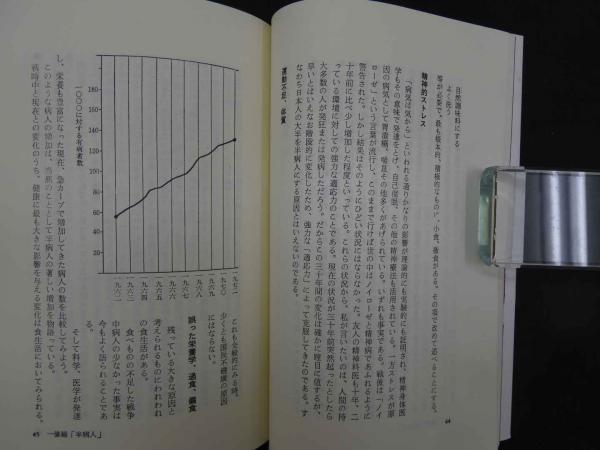 自然調味料にする
よく洗う
等が必要で、最も根本的、積極的なものに、小食、菜食がある。その項で改めて述べることにする。
精神的ストレス
「病気は気から」といわれる通りかなりの影響が理論的にも実験的にも証明され、精神身体医
学もその意味で発達をとげ、自己催眠、その他の精神療法も活用されている。一方ストレスが原
因の病気として胃潰瘍、喘息その他多くがあげられている。いずれも事実である。戦後は「ノイ
ローゼ」という言葉が流行し、このままで行けば世の中はノイローゼと精神病であふれるように
警告された。しかし結果はそのようにひどい状況にはならなかった。友人の精神科医も十年、二
十年前に比べ少し増加した程度といっている。これらの状況から、私が言いたいのは、人間の持
っている環境に対しての強力な適応力のことである。現在の状況が三十年前突然起ったとしたら
大多数の人が発狂または発病しただろう。だからこの三十年間の変化は確かに瞠目に値するが、
早いとはいえなお階段的に変化したため、強力な「適応力」によって克服してきたのである。す
なわち日本人の大半を半病人にする原因とはいえないのである。
運動不足、体質
44
これも全般的にみる時、
少くとも国民不健康の原因
にはならない。
誤った栄養学、過食、偏食
残っている大きな原因と
考えられるものにわれわれ
の食生活がある。
食べものの不足した戦争
中病人の少なかった事実は
今もよく語られることであ
る。
そして科学、医学が発達
一〇〇〇に対する有病者数
180
160
140
120
100
80
60
一九七一
一九七〇
一九六九
一九六八
一九六七
一九六六
一九六五
一九六四
一九六三
一九六二
一九六一
し、栄養も豊富になった現在、急カーブで増加してきた病人の数を比較してみよう。
このような病人の増加は、当然のこととして半病人の著しい増加を物語っている。
戦時中と現在との変化のうち、健康に最も大きな影響を与える変化は食生活においてみられる。
45 一章編「半病人」